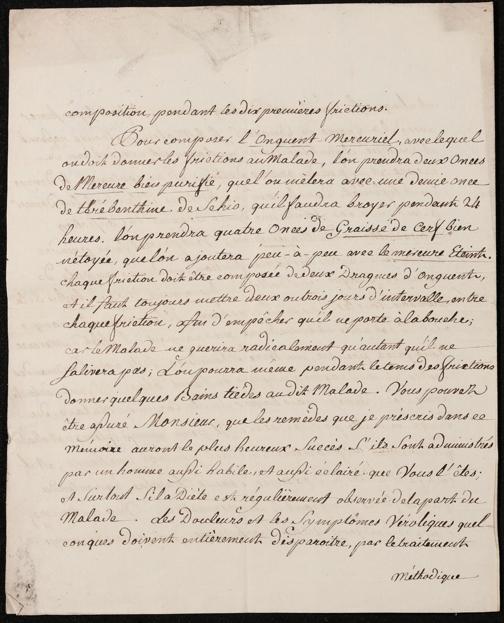 composition, pendant les dix premières frictions.
Pour composer l'Onguent Mercuriel, avec lequel
on doit donner les frictions au Malade, l'on prendra deux Onces
de Mercure bien purifié, quel'on mêlera avec une demie once
de thrébenthine de Schio, qu'il faudra broyer pendant 24
heures. l'on prendra quatre Onces de Graisse de Cerf bien
nétoyée, que l'on ajoutera peu-à-peu avec le mercure Eteint.
chaque friction doit être composée de deux Dragmes d'Onguent,
et il faut toujours mettre deux ou trois jours d'intervalle, entre
chaque friction, afin d'empêcher qu'il ne porte à la bouche;
car le Malade ne guerira radicalement qu'autant qu'il ne
salivera pas; L'on pourra même pendant le tems des frictions
donner quelques Bains tièdes au dit Malade. Vous pouvez
être assuré Monsieur, que les remèdes que je préscris dans ce
Mémoire auront le plus heureux Succès S'ils Sont administrés
par un homme aussi habile, et aussi éclairé que Vous l'êtes;
et Surtout Si la Diète est régulièrement observée de la part du
Malade. Les Douleurs et les Symptômes Véroliques quel
conques doivent entièrement disparoitre, par le traitement
Méthodique